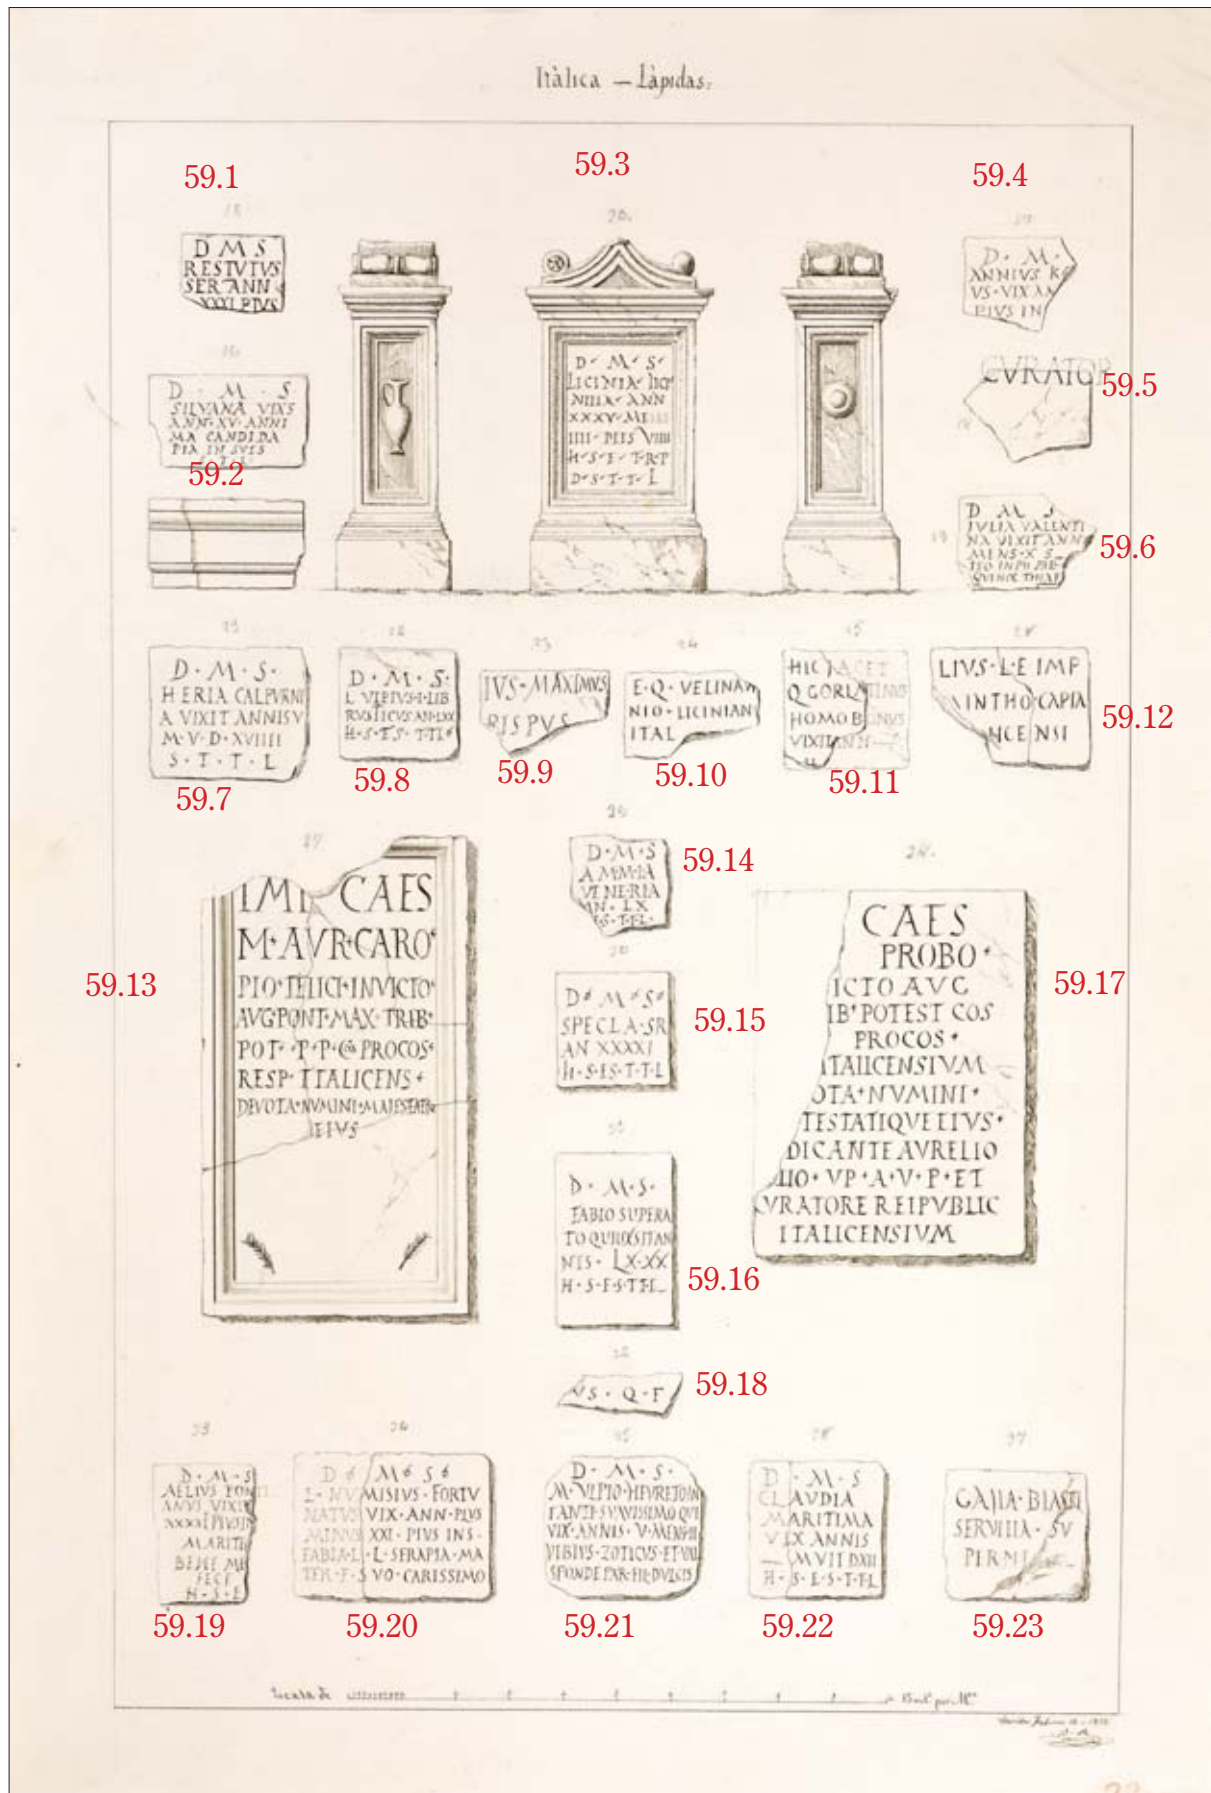 Itàlica — Làpidas:
59.1
D M S
RESTVTVS
SER ANN
XXXI PIVS
59.3
20.
D M S
LICINIA LICI
NIIIA ANN
XXXV ME
IIII DIES VIIII
H S E T R P
D S T T L
59.4
D · M ·
ANNIVS
VS · VIX AN
PIVS IN
16
D · M · S
SILVANA VIXS
ANN · XV · ANNI
MA CANDIDA
PIA IN SVIS
S T L
59.2
CVRATOR
59.5
D M S
IVLIA VALENTI
NA VIXIT ANN
MENS · X S
59.6
D · M · S ·
HERIA CALPVRNI
A VIXIT ANNIS V
M · V · D · XVIIII
S · T · T · L
59.7
22
D · M · S ·
L VLPIVS · I · LIB
RVSTICVS AN · LXX
H · S · E S · T · T L
59.8
23
IVS · MAXIMVS
RISPVS
59.9
24
E · Q · VELINA
NIO · LICINIAN
ITAL
59.10
25
HIC IACET
Q GORLA TINVS
HOMO BONVS
VIXIT ANN
59.11
LIVS · L · E IMP
INTHO CAPIA
NCENSI
59.12
27
IMP CAES
M · AVR · CARO
PIO · FELICI · INVICTO
AVG · PONT · MAX · TRIB
POT · P · P · COS PROCOS
RESP · ITALICENS
DEVOTA · NVMINI · MAIESTATI
EIVS
59.13
D · M · S
AMMIA
VENERIA
AN · LX
S · T · T L ·
59.14
30
D M S
SPECLA · SR
AN XXXXI
H · S · E S · T · T · L
59.15
D · M · S ·
FABIO SVPERA
TO QVI VIXSIT AN
NIS · LX · XX
H · S · E · S · T T · L
59.16
CAES
PROBO
ICTO AVG
IB POTEST COS
PROCOS
ITALICENSIVM
OTA NVMINI
TESTATIQVE EIVS
DICANTE AVRELIO
LIO · VP · A · V · P · ET
VRATORE REIPVBLIC
ITALICENSIVM
59.17
VS · Q · F
59.18
33
D · M · S
AELIVS PONT
ANVS VIXI
XXXI PIVS IN
MARITI
BENE ME
FECI
H · S · E
59.19
34
D M S
L · NVMISIVS · FORTV
NATVS VIX · ANN · PLVS
MINVS XXI · PIVS IN S ·
FABIA · L · L · SERAPIA · MA
TER · F · SVO · CARISSIMO
59.20
35
D · M · S ·
M · VLPIO · HEVRETO IN
FANTI · SVAVISSIMO QVI
VIX · ANNIS · V · MENS · III
VIBIVS · ZOTICVS · ET · VAL
SPONDE PAR · FIL · DVLCIS
59.21
D · M · S
CLAVDIA
MARITIMA
VIX ANNIS
M VII D XIII
H · S · E · S · T · T · L
59.22
37
CALIA · BLASTI
SERVILIA · SV
PERMI
59.23
Escala de